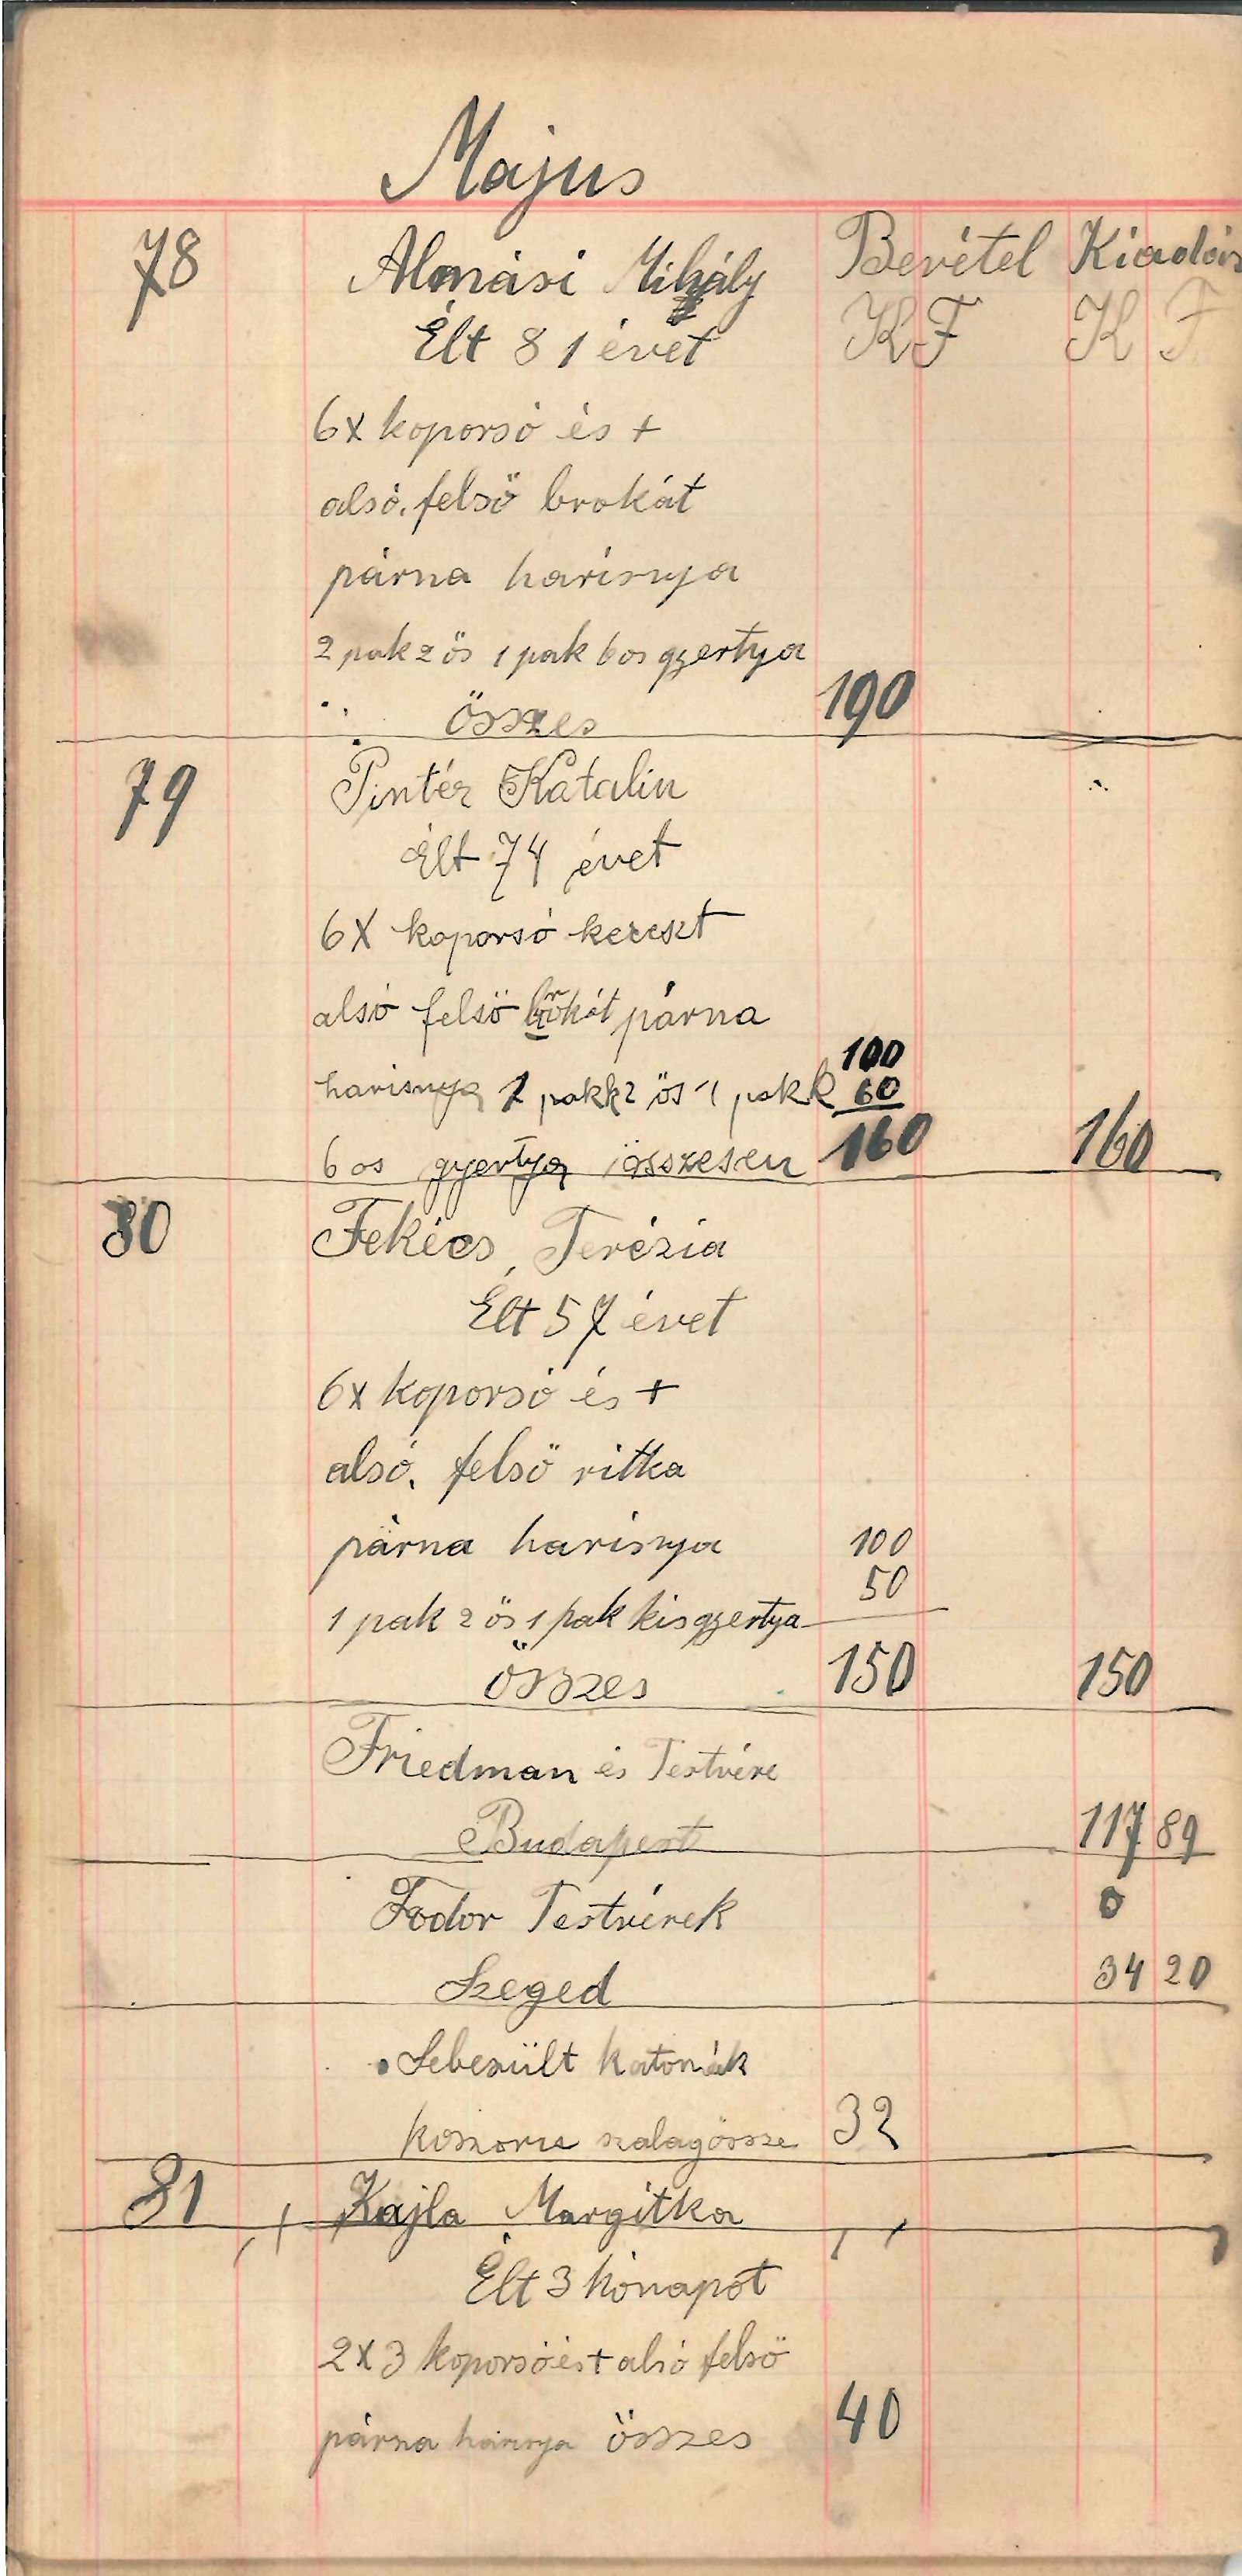 Majus
78 Almási Mihály Bevétel Kiadás
Élt 81 évet K F K F
6x koporsó és +
alsó, felső brokát
párna harisnya
2 pak 2 ős 1 pak 6 os gyertya
összes 190
79 Pintér Katalin
Élt 74 évet
6X koporsó kereszt
alsó felső brokát párna
100
harisnya 1 pakk 2 ős 1 pakk 60
6 os gyertya összesen 160 160
80 Fekécs Terézia
Élt 57 évet
6x koporsó és +
alsó, felső ritka
párna harisnya 100
50
1 pak 2 ős 1 pak kis gyertya
összes 150 150
Friedman és Testvére
Budapest 117 89
Fodor Testvérek 0
Szeged 34 20
Sebesült katonák
koszoru szalag össze 32
81 Kajla Margitka
Élt 3 hónapot
2x3 koporsó és + alsó felső
párna harisnya összes 40